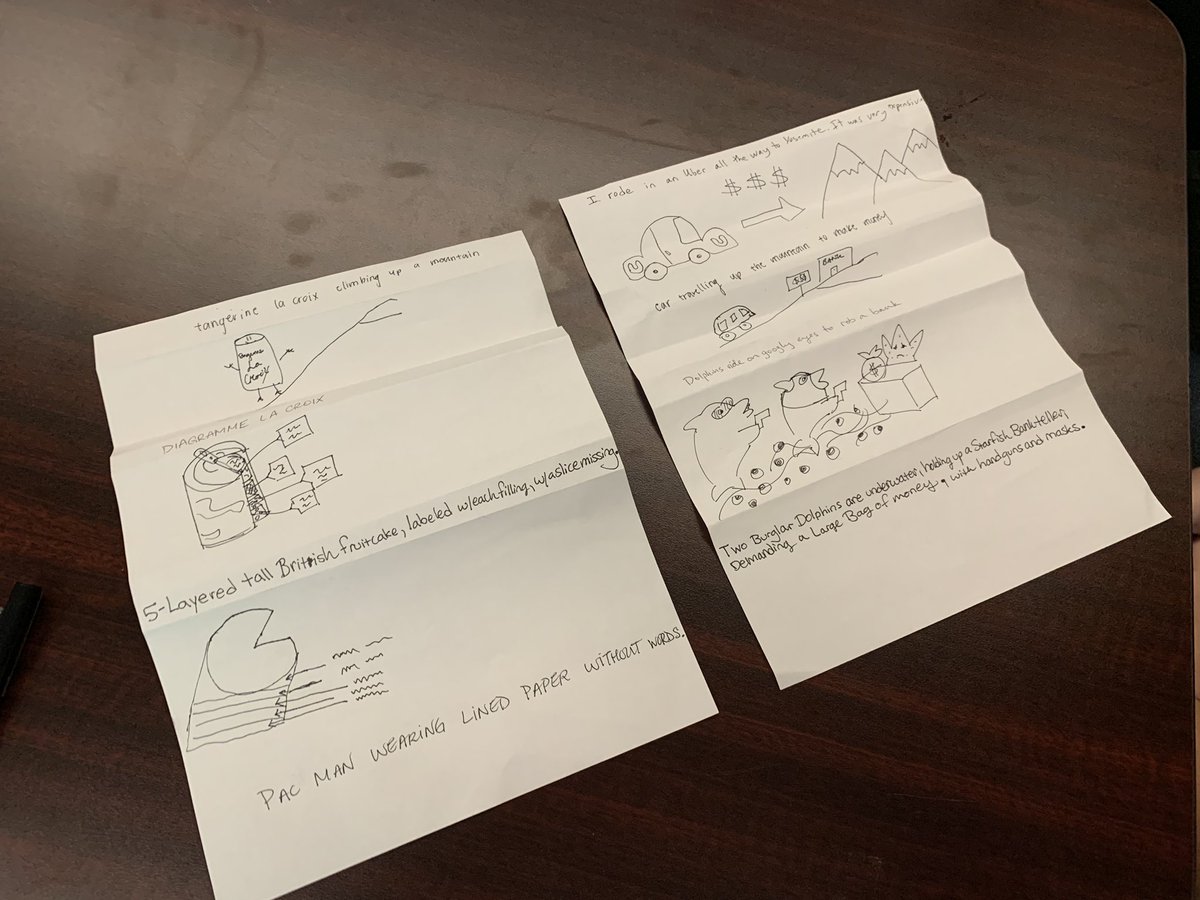 tangerine la croix climbing up a mountain
Tangerine
La
Croix
DIAGRAMME LA CROIX
2
5-Layered tall British fruitcake, labeled w/each filling, w/a slice missing.
PAC MAN WEARING LINED PAPER WITHOUT WORDS.
I rode in an Uber all the way to Yosemite. It was very expensive
$ $ $
car travelling up the mountain to make money
$$
BANK
Dolphins ride on googly eyes to rob a bank
$
Two Burglar Dolphins are underwater, holding up a Starfish Bankteller,
Demanding a Large Bag of money, with handguns and masks.